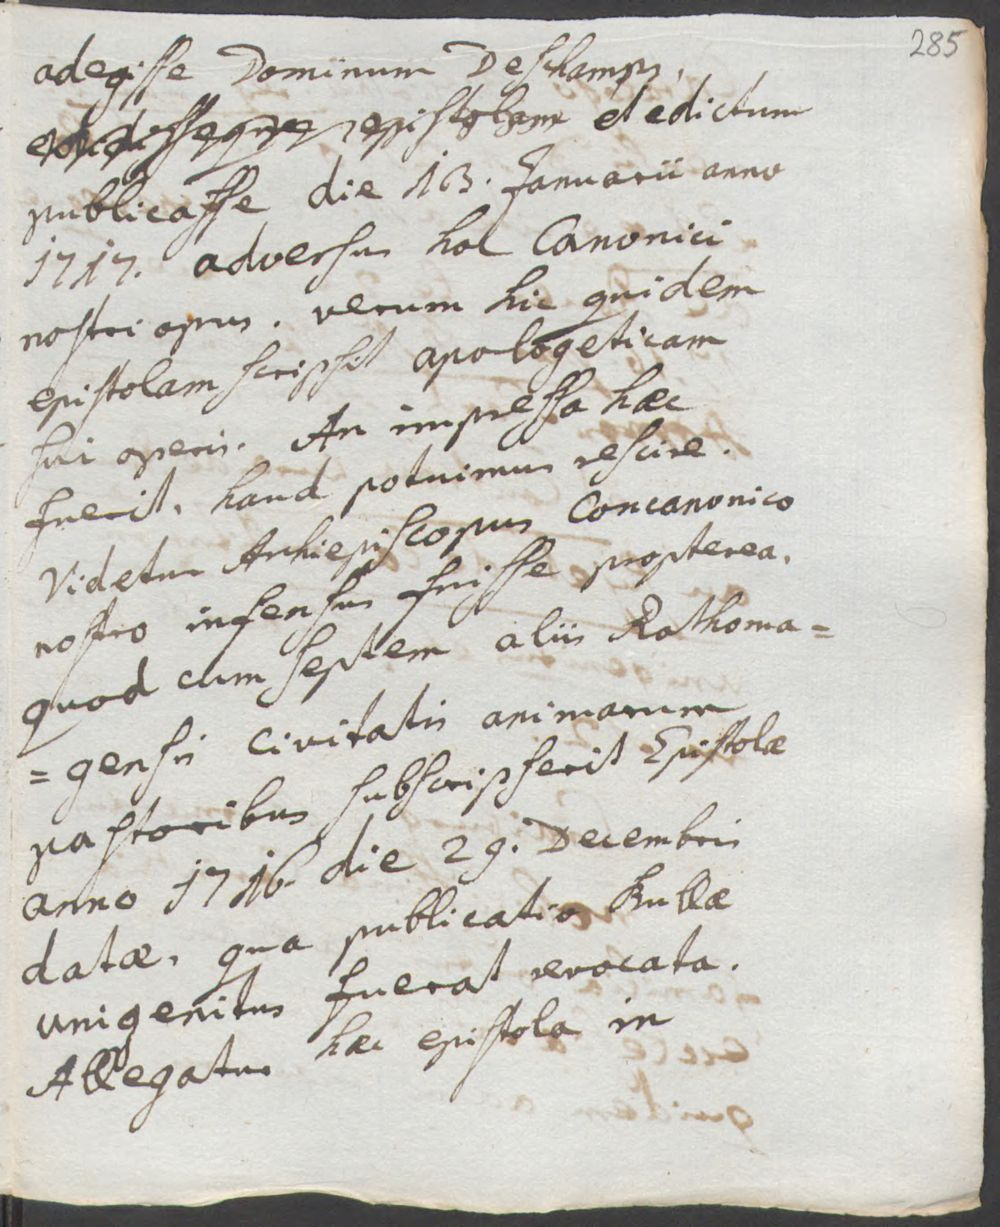 285
adegisse Dominum Deschamps,
epistolam et edictum
publicasse die 13. Januarii anno
1717. adversus hoc Canonici
nostri opus. verum hic quidem
epistolam scripsit apologeticam
sui operis. An impressa hæc
fuerit, haud potuimus rescire.
Videtur Archiepiscopus Concanonico
nostro infensus fuisse propterea,
quod cum septem aliis Rothoma=
=gensis civitatis animarum
pastoribus subscripserit Epistolæ
anno 1716. die 29. Decembris
datæ, qua publicatio Bullæ
unigenitus fuerat revocata.
Allegatur hæc epistola in